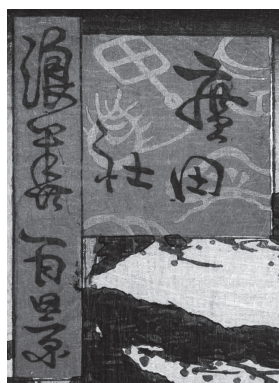 廣田
社
浪華百景